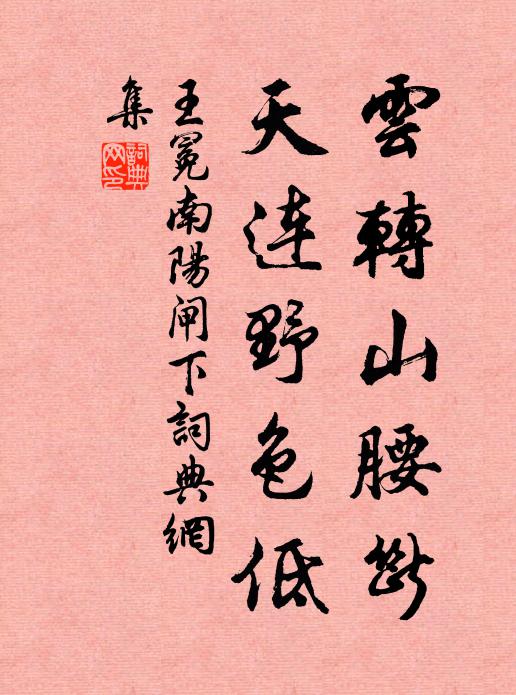 雲轉山腰斷
天連野色低
王冕南陽閘下詞典網
集
詞典
网印